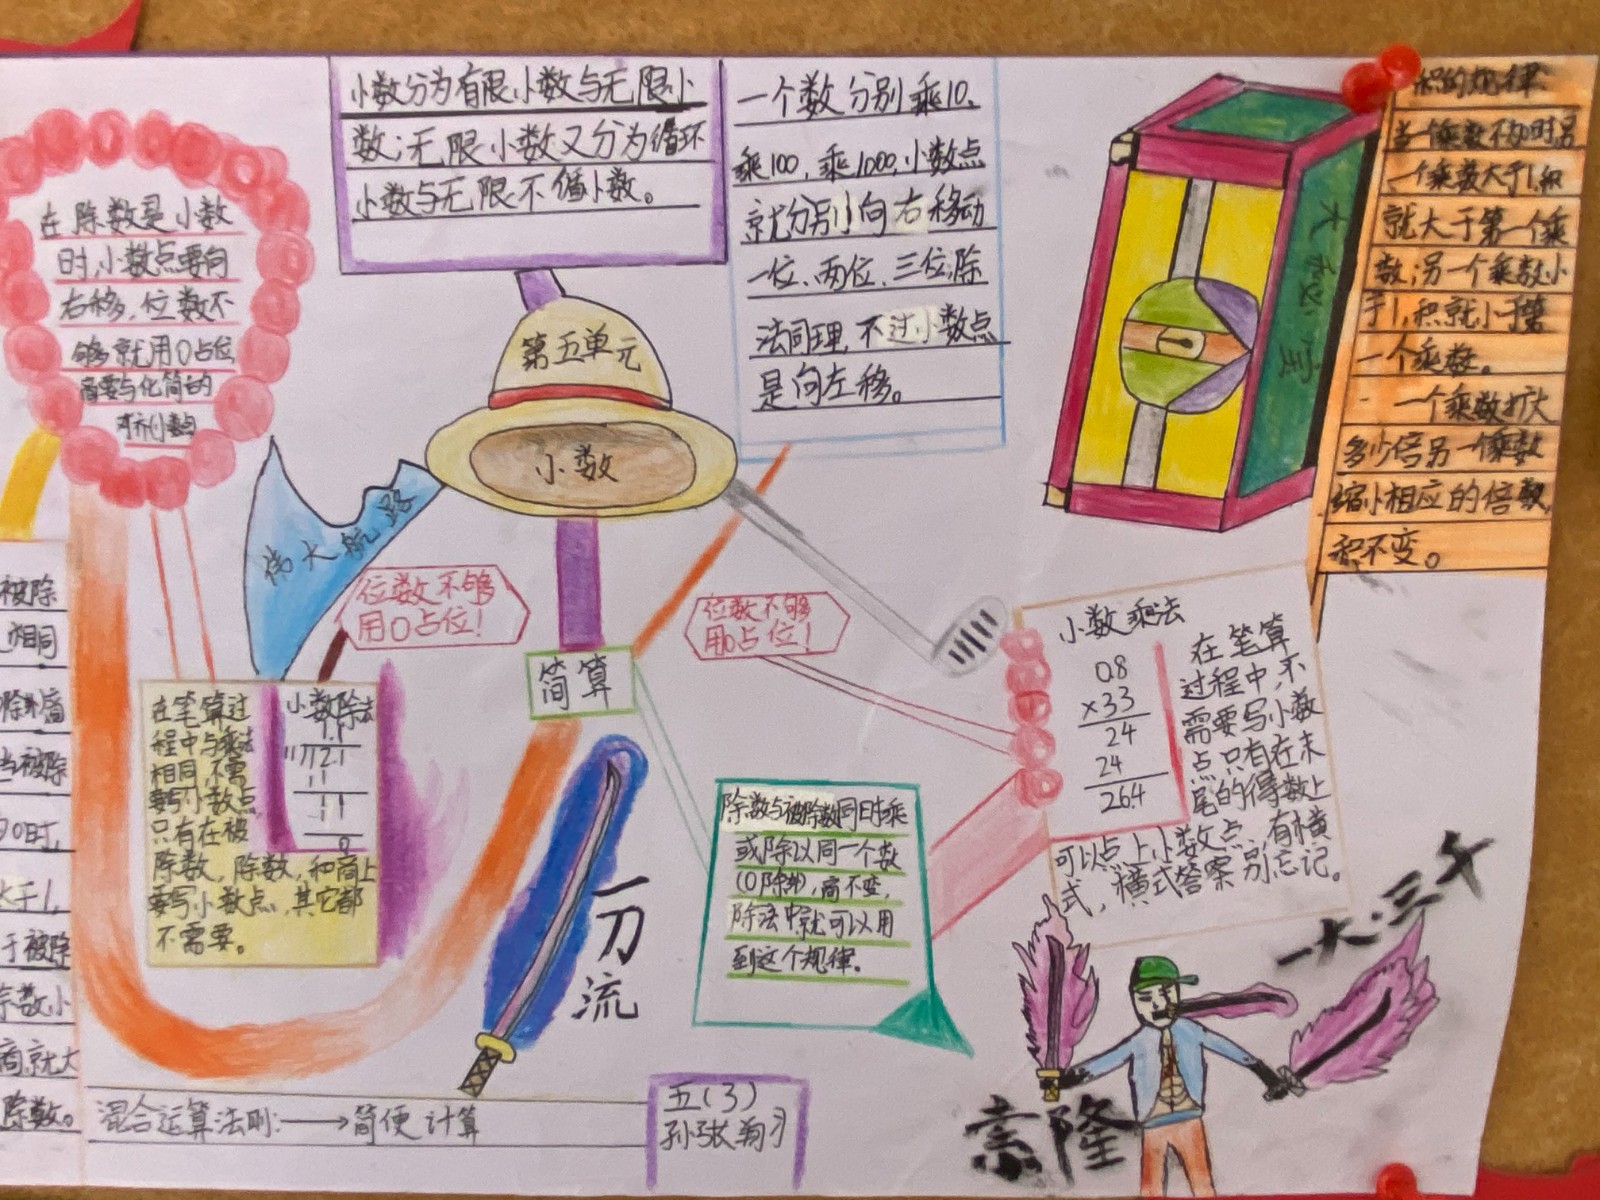 小数分为有限小数与无限小
数;无限小数又分为循环
小数与无限不循小数。
一个数分别乘10,
乘100,乘1000,小数点
就分别小向右移动
一位、两位、三位,除
法同理,不过小数点
是向左移。
积的规律:
当一乘数不为0时,另
一个乘数大于1,积
就大于第一个乘
数;另一个乘数小
于1,积就小于第
一个乘数。
一个乘数扩大
多少倍另一个乘数
缩小相应的倍数,
积不变。
大秘宝
在除数是小数
时,小数点要向
右移,位数不
够就用0占位
商要与化简的
第五单元
小数
伟大航路
位数不够
用0占位!
位数不够
用0占位!
简算
被除
相同
当被除
为0时,
大于1,
于被除
商就大
除数。
在笔算过
程中与乘法
相同,不需
要写小数点,
只有在被
除数,除数,和商上
要写小数点,其它都
不需要。
小数除法
1.1
11
12.1
11
11
11
0
小数乘法
0.8
×33
24
24
26.4
在笔算
过程中,不
需要写小数
点只有在末
尾的得数上
可以点上小数点,有横
式,横式答案别忘记。
除数与被除数同时乘
或除以同一个数
(0除外),商不变,
除法中就可以用
到这个规律。
一刀
流
一大·三千
索隆
混合运算法则:→简便计算
五(3)
孙张翔